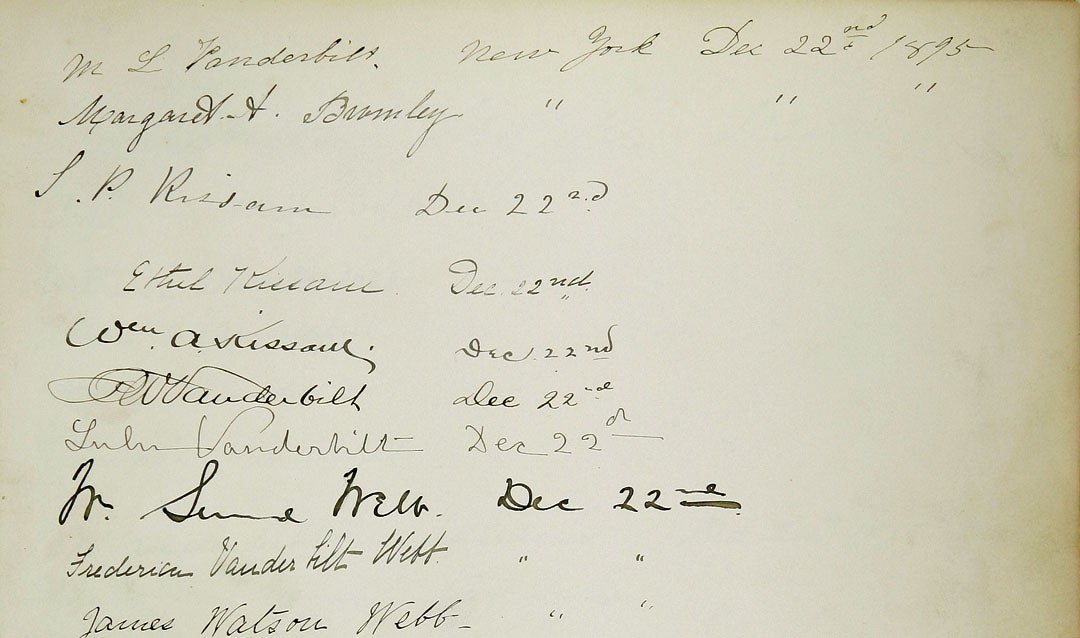 M L Vanderbilt. New York Dec 22nd 1895
Margaret A. Bromley " " "
S. P. Kissam Dec 22nd
Ethel Kissam. Dec. 22nd
Wm. A. Kissam. Dec. 22nd
F W Vanderbilt Dec 22nd
Lulu Vanderbilt Dec 22d
W. Seward Webb. Dec 22nd
Frederica Vanderbilt Webb. " "
James Watson Webb " "